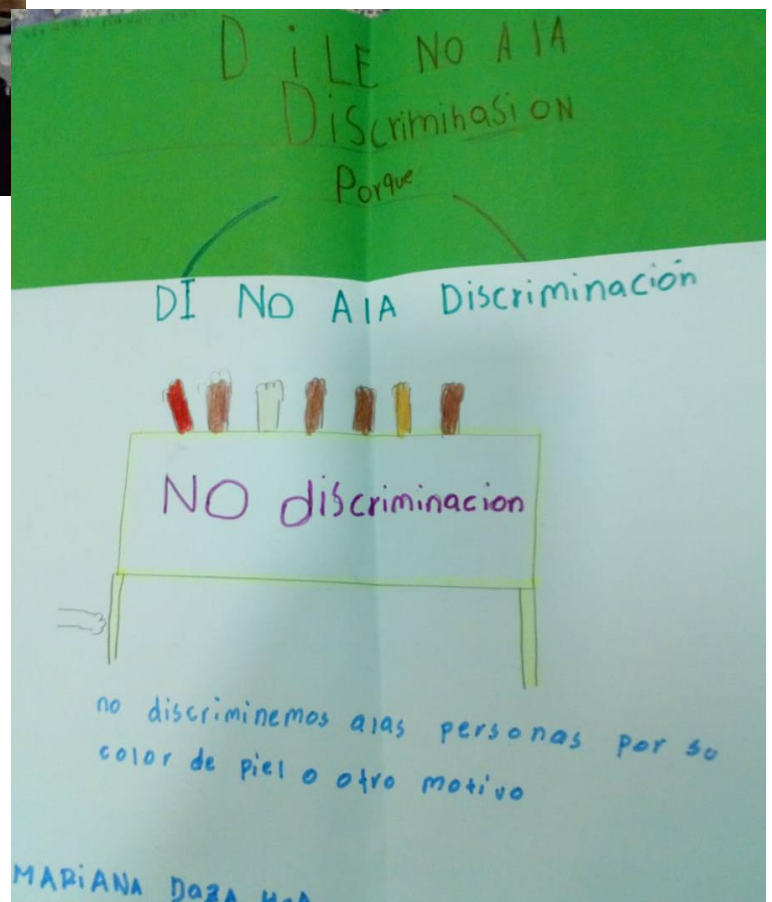 DiLE NO A lA
DiScriminaSiON
Porque
DI NO AlA Discriminación
NO discriminacion
no discriminemos alas personas por su
color de piel o otro motivo
MARiANA DaZA